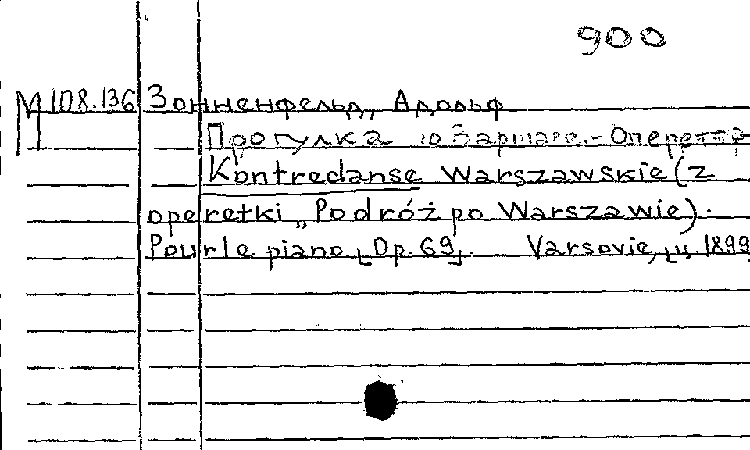 900
М 108.136 Зонненфельд, Адольф
Прогулка по Варшаве. - Оперетта
Kontredanse Warszawskie (z
operetki „Podróż po Warszawie).
Pour le piano [Op. 69]. Varsovie, 1899